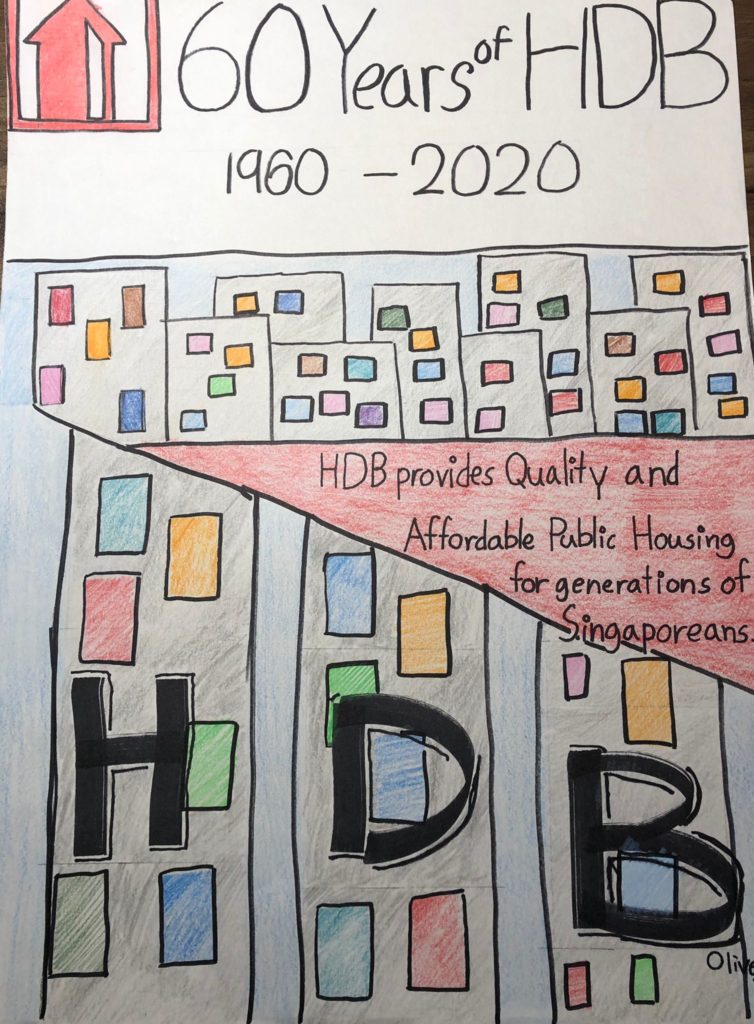 60 Years of HDB
1960 - 2020
HDB provides Quality and
Affordable Public Housing
for generations of
Singaporeans.
H D B